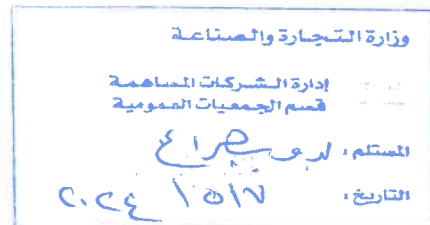 وزارة التجارة والصناعة
إدارة الشركات المساهمة
قسم الجمعيات العمومية
المستلم :
التاريخ : ٢٠٢٤ / ٥ / ٧